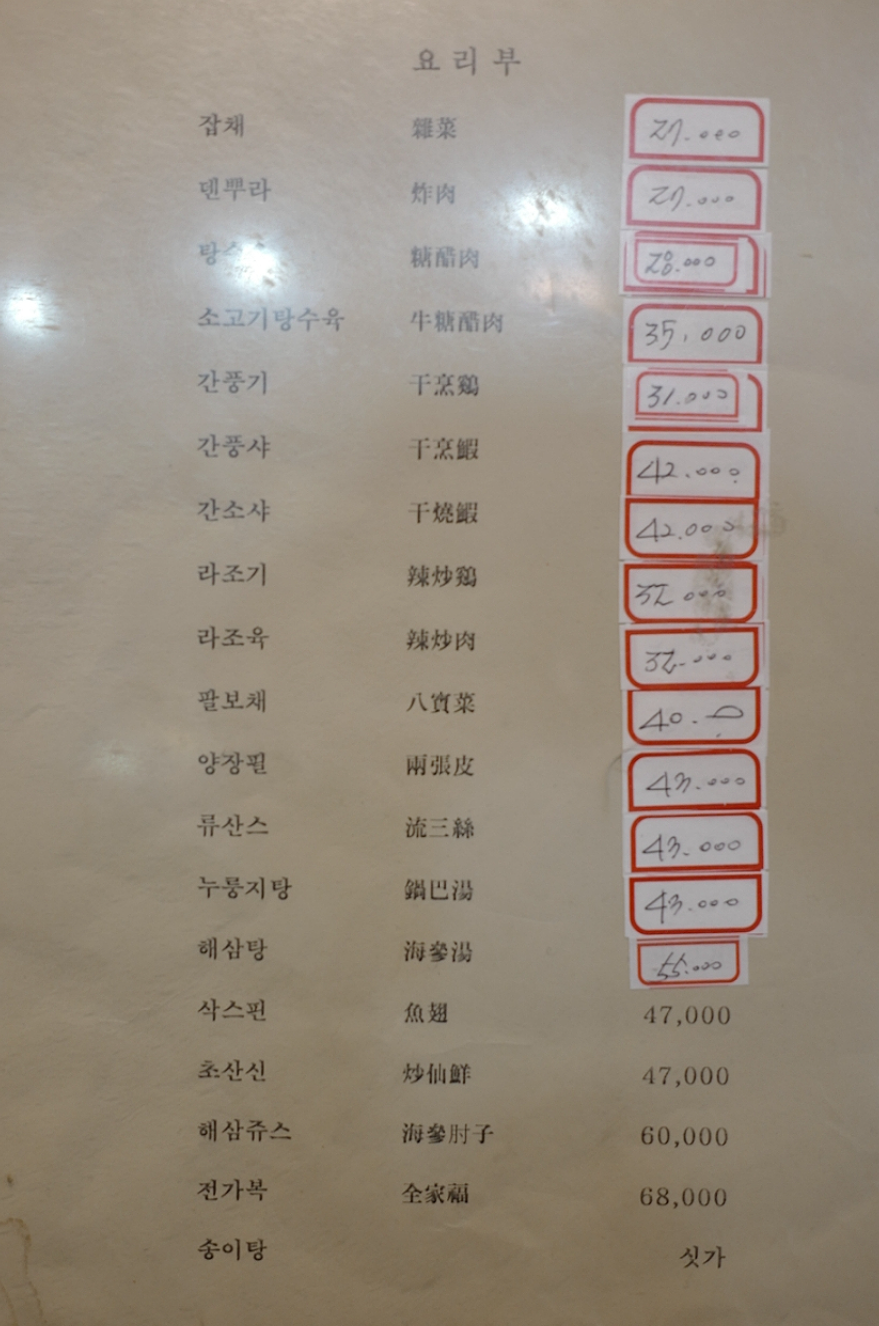 요리부
잡채 雜菜 27.000
덴뿌라 炸肉 27.000
탕수 糖醋肉 28.000
소고기탕수육 牛糖醋肉 35.000
간풍기 干烹鷄 31.000
간풍샤 干烹鰕 42.000
간소샤 干燒鰕 42.000
라조기 辣炒鷄 32.000
라조육 辣炒肉 32.000
팔보채 八寳菜 40.
양장필 兩張皮 43.000
류산스 流三絲 43.000
누룽지탕 鍋巴湯 43.000
해삼탕 海參湯 55.000
삭스핀 魚翅 47,000
초산신 炒仙鮮 47,000
해삼쥬스 海參肘子 60,000
전가복 全家福 68,000
송이탕 싯가